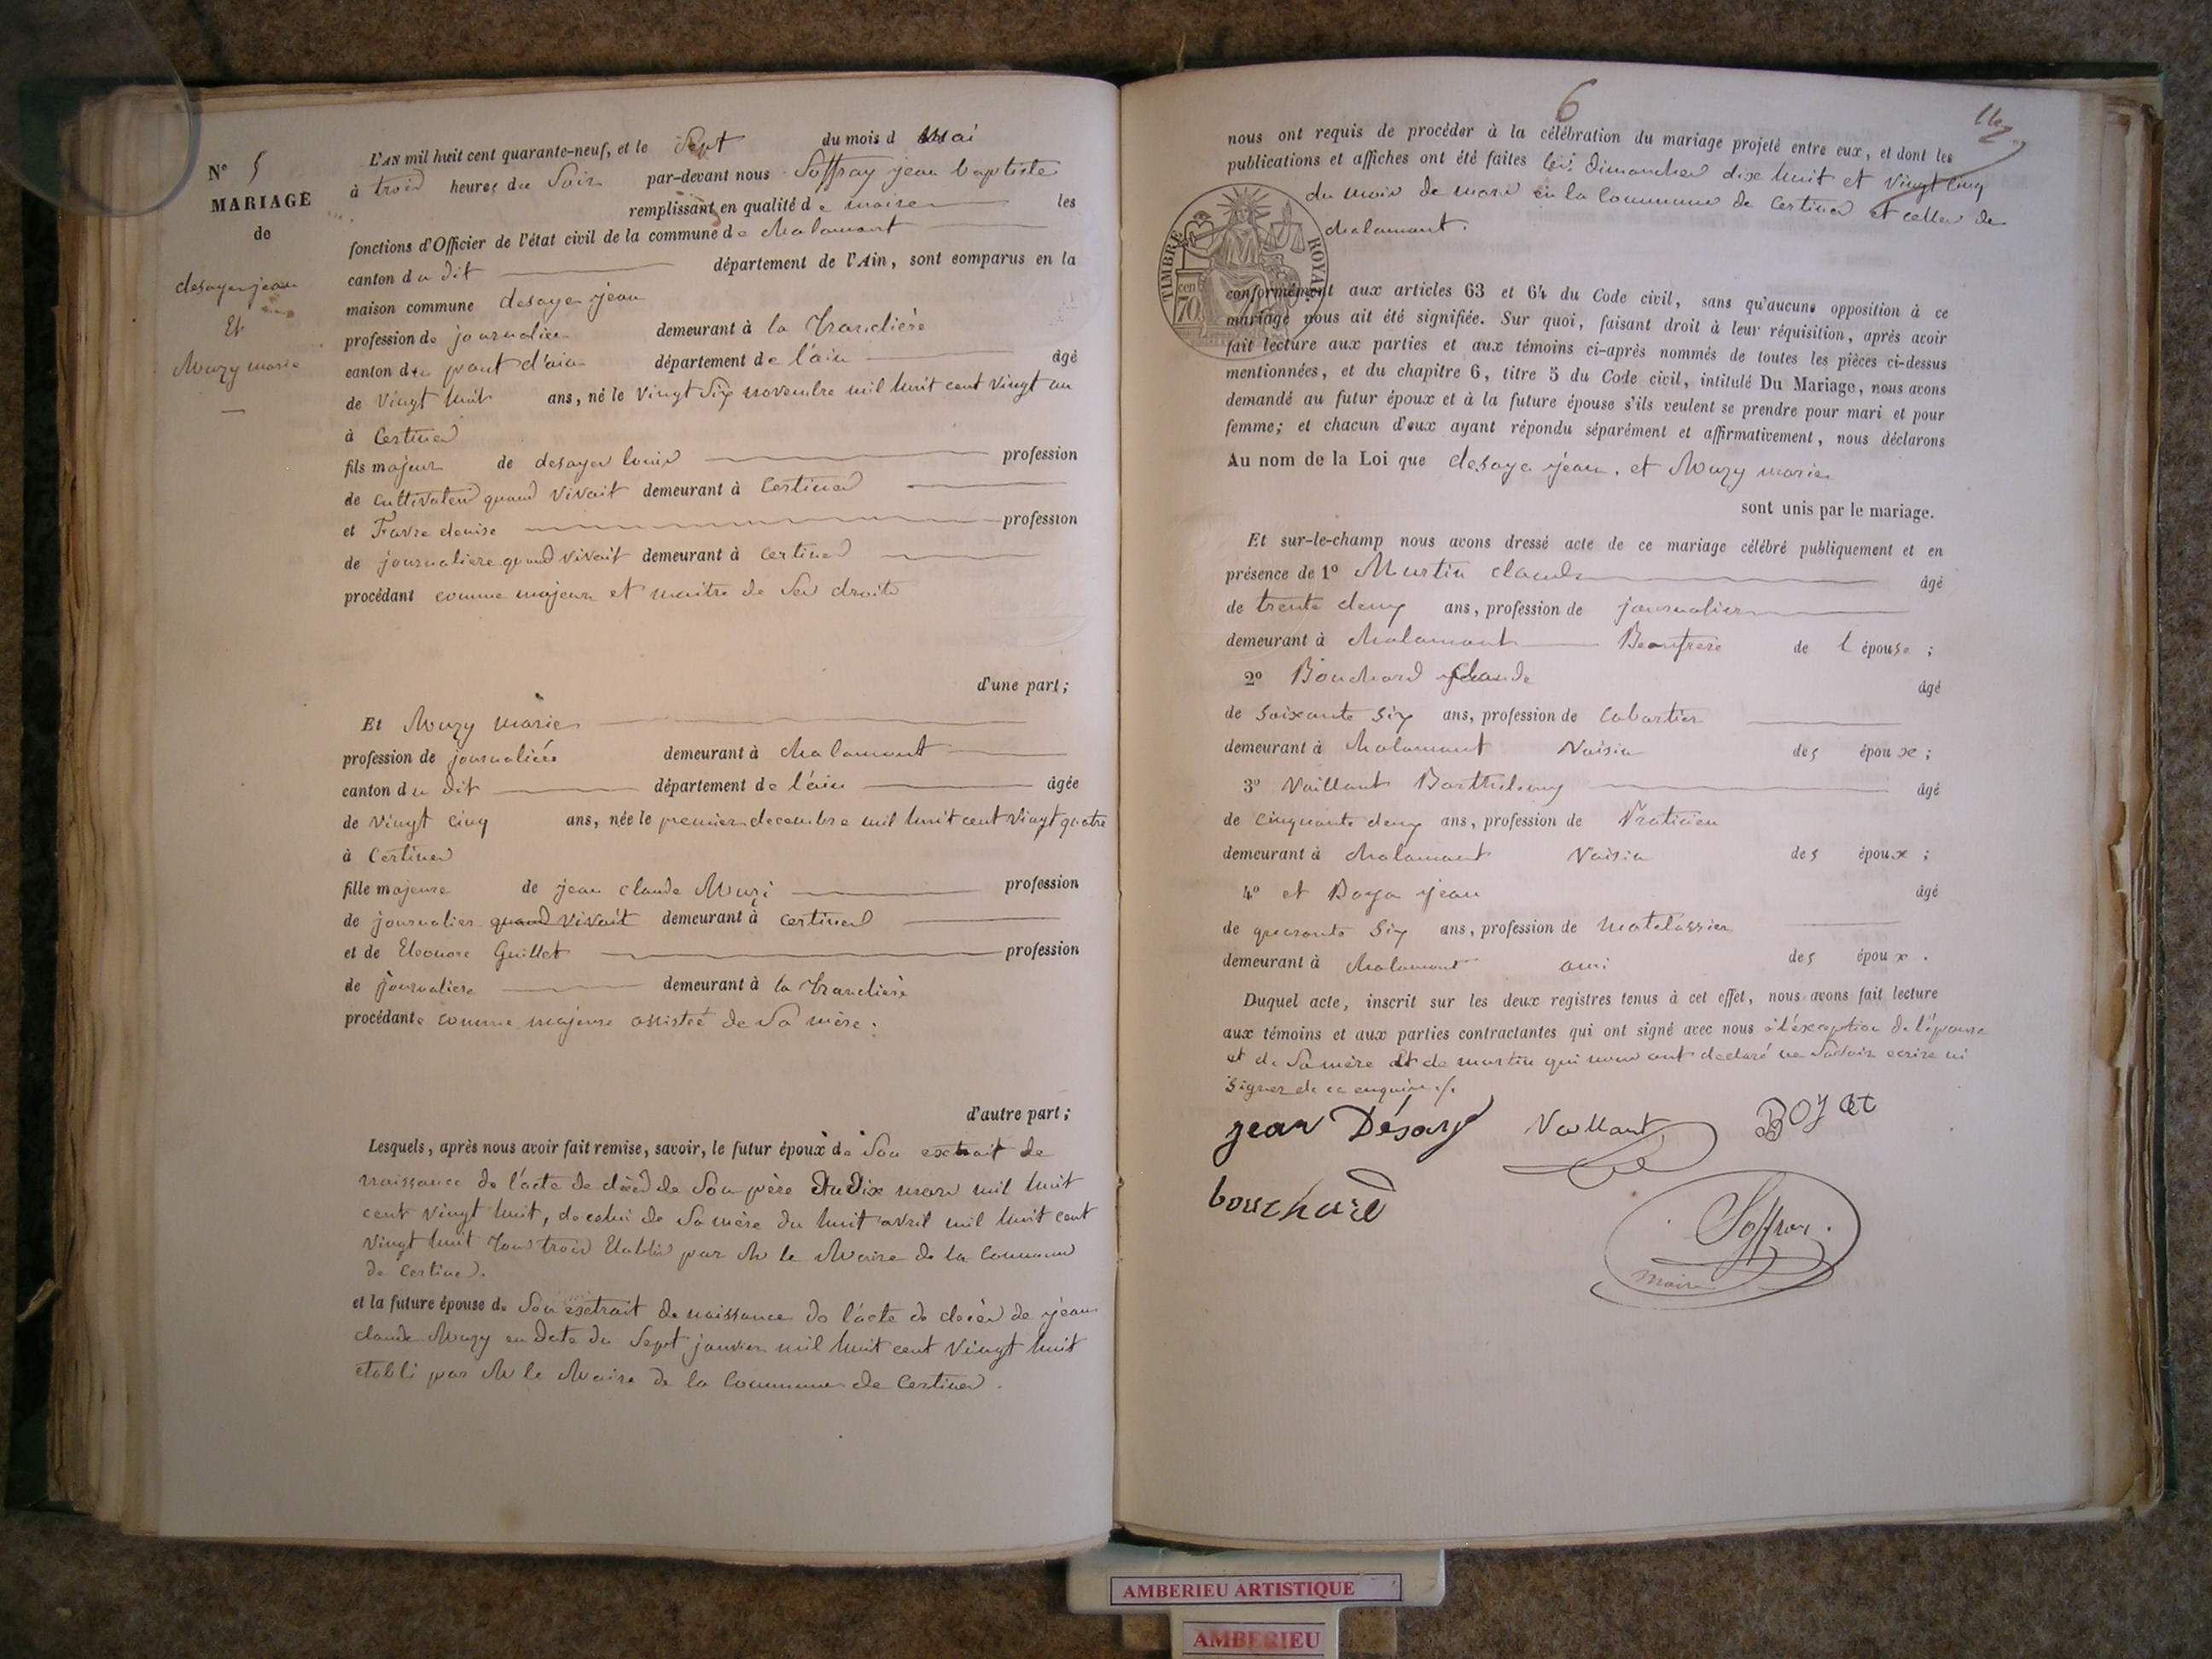 N° 5
MARIAGE
de
desaye jean
Et
Muzy marie
L'AN mil huit cent quarante-neuf, et le Sept du mois d Mai
à trois heures du Soir par-devant nous Soffray jean baptiste
remplissant en qualité de maire les
fonctions d'Officier de l'état civil de la commune de chalamont
canton du dit département de l'Ain, sont comparus en la
maison commune desaye jean
profession de journalier demeurant à la tranclière
canton du pont d'ain département de l'ain âgé
de Vingt huit ans, né le Vingt Six novembre mil huit cent vingt un
à Certines
fils majeur de desayes louis profession
de Cultivateur quand vivait demeurant à Certines
et Favre denise profession
de journaliere quand vivait demeurant à Certines
procédant comme majeur et maitre de Ses droits
d'une part;
Et Muzy marie
profession de journalière demeurant à chalamont
canton du dit département de l'ain âgée
de Vingt cinq ans, née le premier decembre mil huit cent vingt quatre
à Certines
fille majeure de jean claude Muzi profession
de journalier quand vivait demeurant à certines
et de Eleonore Guillet profession
de journaliere demeurant à la tranclière
procédante comme majeure assistée de Sa mère.
d'autre part;
Lesquels, après nous avoir fait remise, savoir, le futur époux de Son extrait de
naissance de l'acte de décès de Son père du Dix mars mil huit
cent vingt huit, de celui de Sa mère du huit avril mil huit cent
Vingt huit tous trois Etablis par M le Maire de la Commune
de Certines.
et la future épouse de Son extrait de naissance de l'acte de décès de jean
claude Muzy en date du Sept janvier mil huit cent Vingt huit
etabli par M le Maire de la Commune de Certines.
6
nous ont requis de procéder à la célébration du mariage projeté entre eux, et dont les
publications et affiches ont été faites les Dimanches dix huit et vingt cinq
du mois de mars en la Commune de Certines et celle de
chalamont.
TIMBRE ROYAL
cen 70
conformément aux articles 63 et 64 du Code civil, sans qu'aucune opposition à ce
mariage nous ait été signifiée. Sur quoi, faisant droit à leur réquisition, après avoir
fait lecture aux parties et aux témoins ci-après nommés de toutes les pièces ci-dessus
mentionnées, et du chapitre 6, titre 5 du Code civil, intitulé Du Mariage, nous avons
demandé au futur époux et à la future épouse s'ils veulent se prendre pour mari et pour
femme; et chacun d'eux ayant répondu séparément et affirmativement, nous déclarons
Au nom de la Loi que desaye jean, et Muzy marie
sont unis par le mariage.
Et sur-le-champ nous avons dressé acte de ce mariage célébré publiquement et en
présence de 1° Martin claude âgé
de trente deux ans, profession de journalier
demeurant à chalamont Beaufrere de l épouse ;
2° Bouchard Claude âgé
de Soixante Six ans, profession de Cabartier
demeurant à chalamont Voisin des époux ;
3° Vaillant Barthelemy âgé
de cinquante deux ans, profession de Praticien
demeurant à chalamont Voisin des époux ;
4° et Boya jean âgé
de quarante Six ans, profession de Matelassier
demeurant à chalamont ami des époux .
Duquel acte, inscrit sur les deux registres tenus à cet effet, nous avons fait lecture
aux témoins et aux parties contractantes qui ont signé avec nous à l'exception de l'épouse
et de Sa mère et de martin qui nous ont declaré ne Savoir ecrire ni
Signer de ce enquire ./.
jean Désay Vaillant BOYat
bouchard
Soffray
Maire
AMBERIEU ARTISTIQUE
AMBERIEU